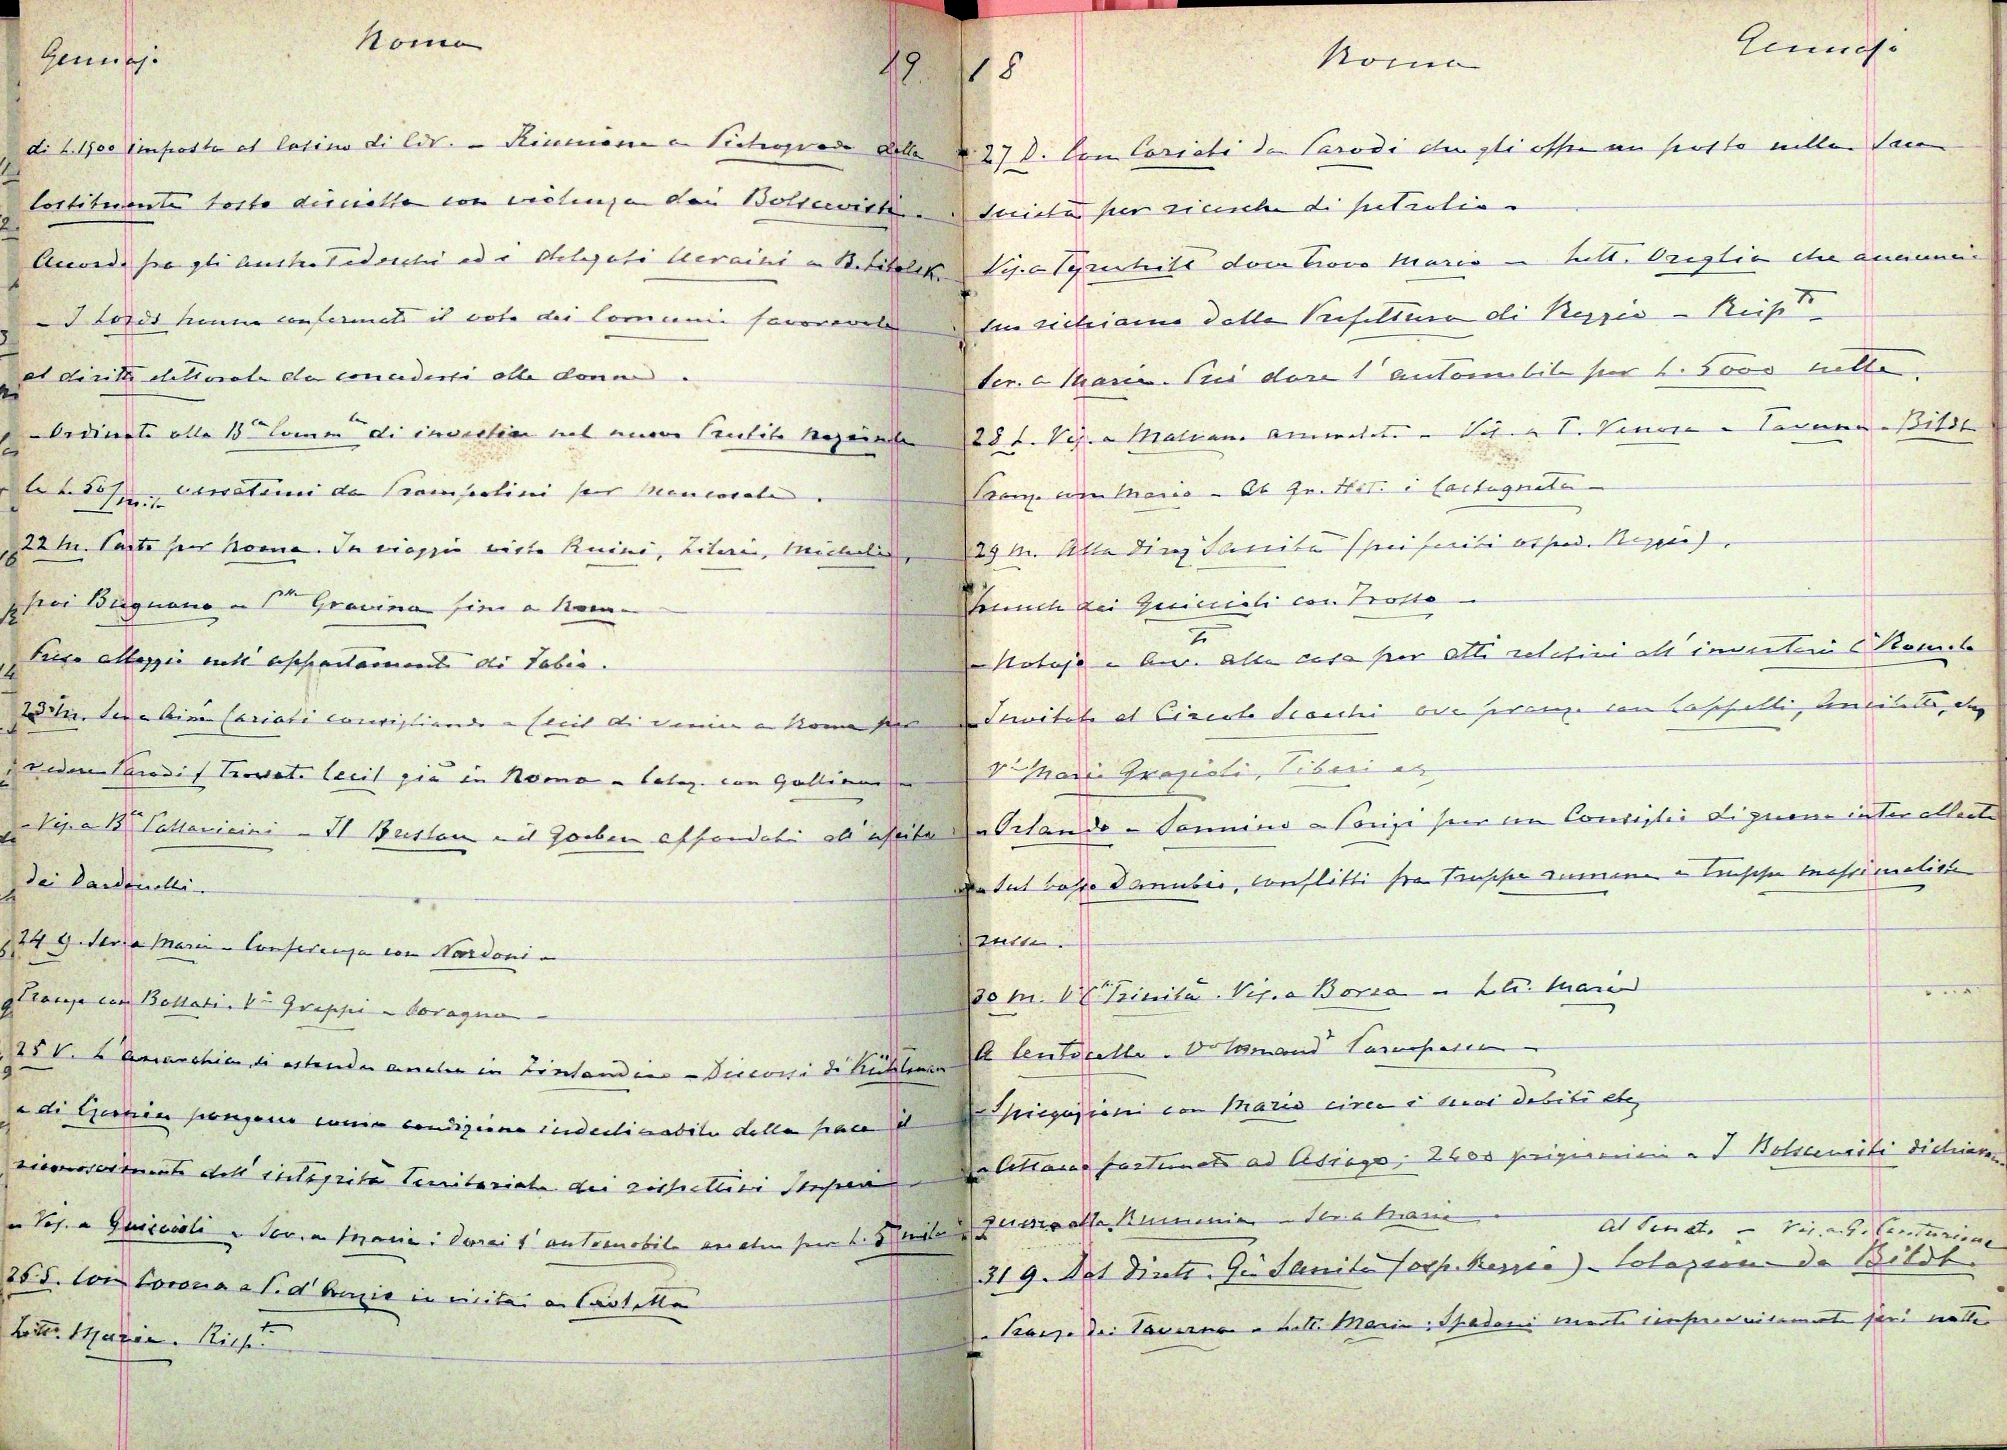 Gennajo Roma 19
di L. 1900 imposta al Casino di Cor. - Riunione a Pietrogrado della
Costituente tosto disciolta con violenza dai Bolscevisti.
Accordo fra gli austro Tedeschi ed i delegati Ucraini a B. Litolsk.
- I Lords hanno confermato il voto dei Comuni favorevole
al diritto elettorale da concedersi alle donne.
- Ordinato alla B.ca Comm.le di investire nel nuovo Prestito Nazionale
le L. 50/m versatemi da Prampolini per Mancasale.
22 M. Parto per Roma. In viaggio visto Ruini, Zileri, Micheli,
poi Brugnano e P.pe Gravina fino a Roma
Preso alloggio nell' appartamento di Fabio.
23 M. Scr. a Cariati consigliando a Cecil di venire a Roma per
vedere Parodi / Trovato Cecil già in Roma - Colaz. con Gallina -
- Vis. a B. Pallavicini - Il Breslau e il Goeben affondati all' uscita
dei Dardanelli.
24 G. Scr. a Maria - Conferenza con Nardoni -
Pranzo con Bollati. V. Greppi - Soragna -
25 V. L'anarchia si estende anche in Finlandia - Discorsi di Kühlmann
e di Czernin pongono come condizione indeclinabile della pace il
riconoscimento dell' integrità territoriale dei rispettivi Imperi
- Vis. a Guiccioli - Scr. a Maria: Darei l' automobile anche per L. 5 mila
26 S. Con Corona e P. d' in visita a
Lett. Maria. Risp.to
18 Roma Gennajo
27 D. Con Cariati da Parodi che gli offre un posto nella sua
società per ricerche di petrolio.
Vis. a Tyrwhitt dove trovo Mario - Lett. Origlia che annuncia
suo richiamo dalla Prefettura di Reggio - Risp.to
Scr. a Maria. Può dare l' automobile per L. 5000 nette.
28 L. Vis. a Malvano ammalato - Vis. a T. Venosa - Taverna - Bildt
Pranzo con Mario - Al Gr. Hot. i Castagneto -
29 M. Alla Direz. Sanità (pei feriti osped. Reggio).
Lunch dai Guiccioli con Frasso -
- Notajo e Avv.to alla casa per atti relativi all' inventario C. Romolo
- Invitato al Circolo Scacchi ove pranzo con Cappelli, Ancilotto,
V. Mario Grazioli, Tiberi etc
- Orlando e Sonnino a Parigi per un Consiglio di guerra interalleato
- Sul basso Danubio, conflitti fra truppe rumene e truppe massimaliste
russe.
30 M. V. Trinità. Vis. a Borea - Lett. Maria
A Centocelle.
- Spiegazioni con Mario circa i suoi debiti etc
- Attacco fortunato ad Asiago; 2600 prigionieri - I Bolscevisti dichiarano
guerra alla Rumenia - Scr. a Maria - Al Senato - Vis. a G. Centurione
31 G. Dal Dirett. G. Sanità (osp. Reggio) - Colazione da Bildt.
- Pranzo dai Taverna - Lett. Maria: Spadoni morto improvvisamente jeri notte